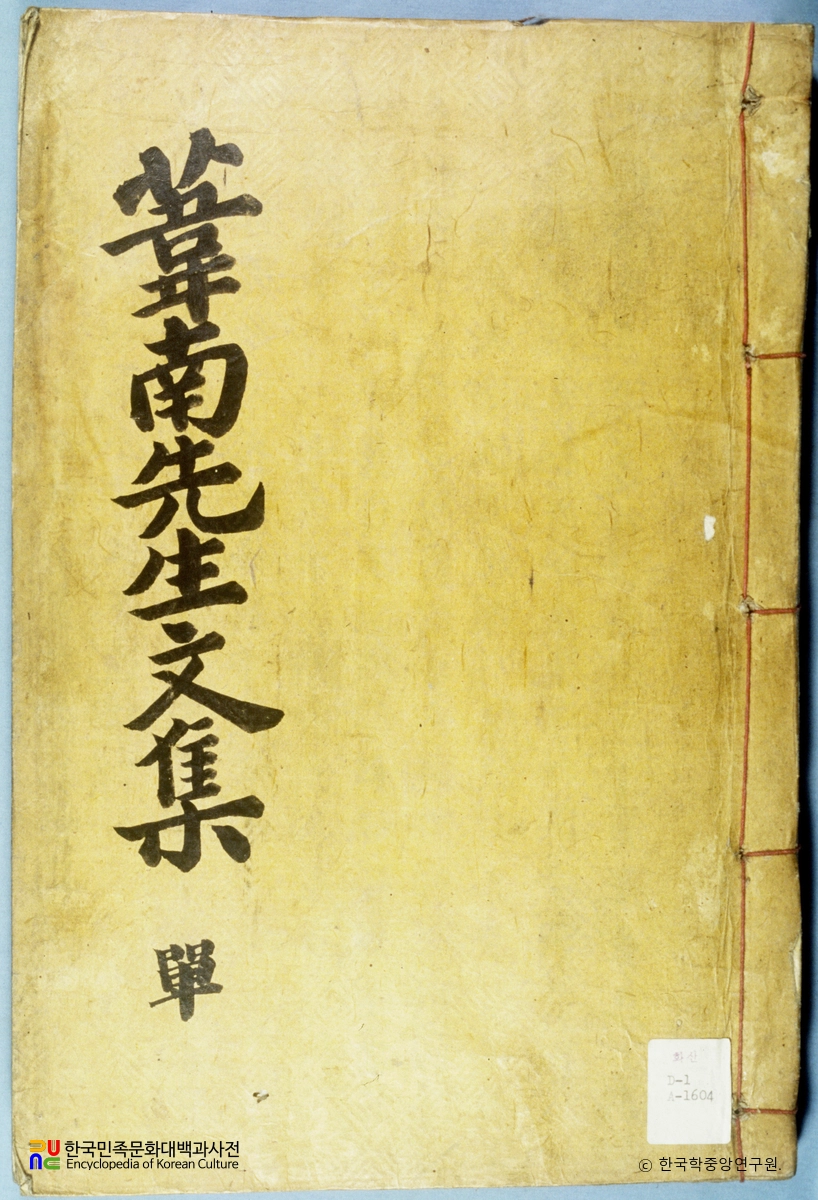 葦南先生文集
單
화산
D-1
A-1604
한국민족문화대백과사전
Encyclopedia of Korean Culture
© 한국학중앙연구원